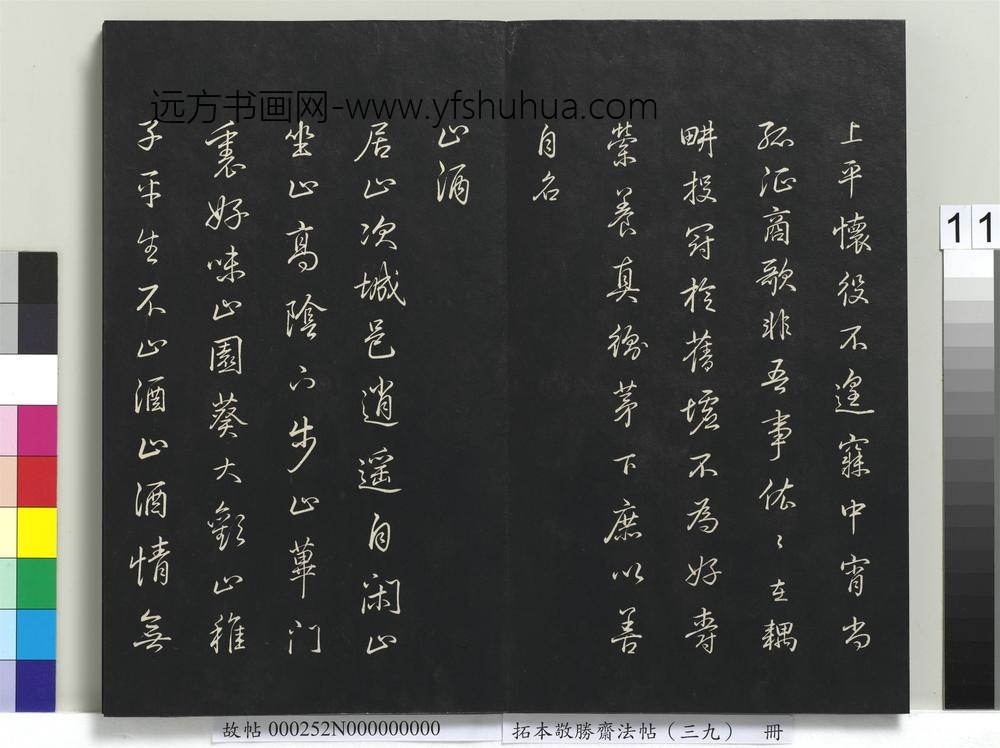 上平懷役不遑寐中宵尚
孤征商歌非吾事依〻在耦
畊投冠旋舊墟不為好爵
縈養真衡茅下庶以善
自名
止酒
居止次城邑逍遙自閑止
坐止高蔭下步止蓽門
裏好味止園葵大歡止稚
子平生不止酒止酒情無
远方书画网-www.yfshuhua.com
11
故帖 000252N000000000
拓本敬勝齋法帖（三九） 冊